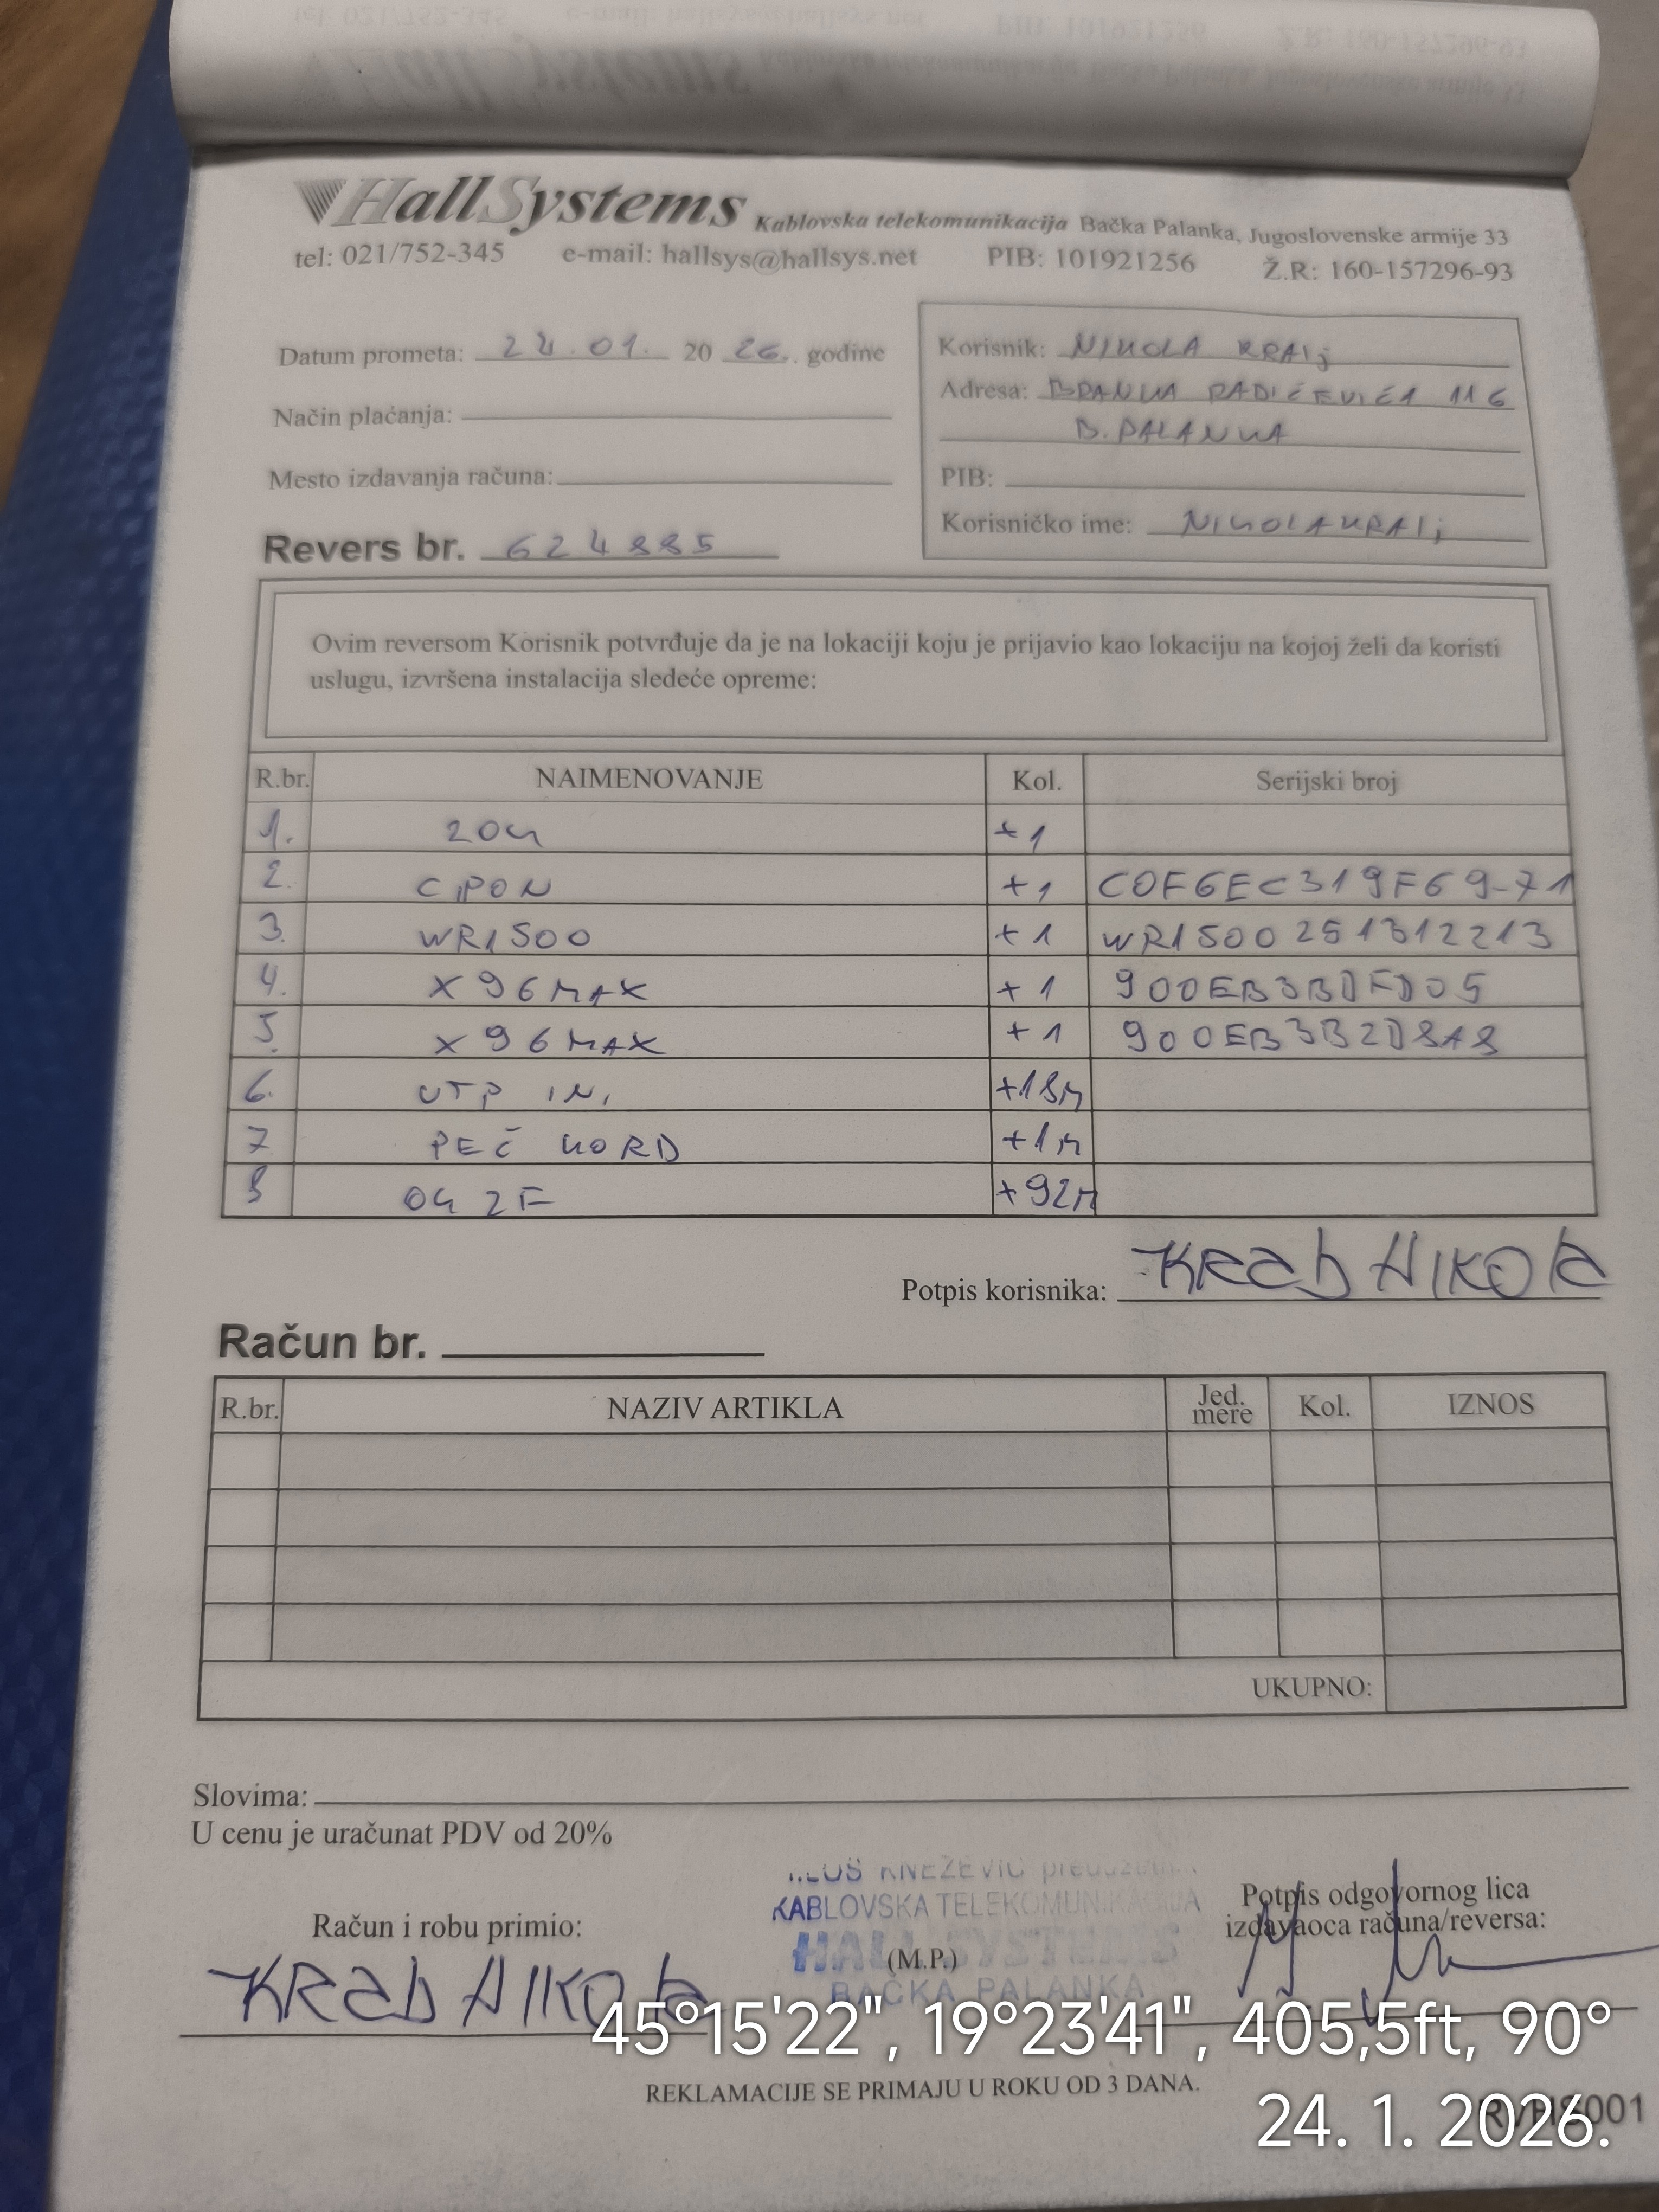 HallSystems Kablovska telekomunikacija Bačka Palanka, Jugoslovenske armije 33
tel: 021/752-345 e-mail: hallsys@hallsys.net PIB: 101921256 Ž.R: 160-157296-93
Datum prometa: 24.01. 20 26. godine
Način plaćanja:
Mesto izdavanja računa:
Revers br. 624885
Korisnik: NIKOLA KRALj
Adresa: BRANKA RADIČEVIĆA 116
B. PALANKA
PIB:
Korisničko ime: NIKOLAKRALj
Ovim reversom Korisnik potvrđuje da je na lokaciji koju je prijavio kao lokaciju na kojoj želi da koristi
uslugu, izvršena instalacija sledeće opreme:
R.br. NAIMENOVANJE Kol. Serijski broj
1. +1
2. +1 C0F6EC319F69-71
3. WR1500 +1 WR1500251312213
4. X96MAX +1 900EB3BDFD05
5. X96MAX +1 900EB3B2D8A8
6. UTP IN, +18M
7 PEČ KORD +1M
8 2F +92M
Potpis korisnika: KRALJ NIKOLA
Račun br.
R.br. NAZIV ARTIKLA Jed. mere Kol. IZNOS
UKUPNO:
Slovima:
U cenu je uračunat PDV od 20%
KNEŽEVIĆ
KABLOVSKA TELEKOMUNIKACIJA
HALL SYSTEMS
BAČKA PALANKA
Račun i robu primio:
(M.P.)
Potpis odgovornog lica
izdavaoca računa/reversa:
KRALJ NIKOLA
45°15'22", 19°23'41", 405,5ft, 90°
REKLAMACIJE SE PRIMAJU U ROKU OD 3 DANA.
24. 1. 2026.